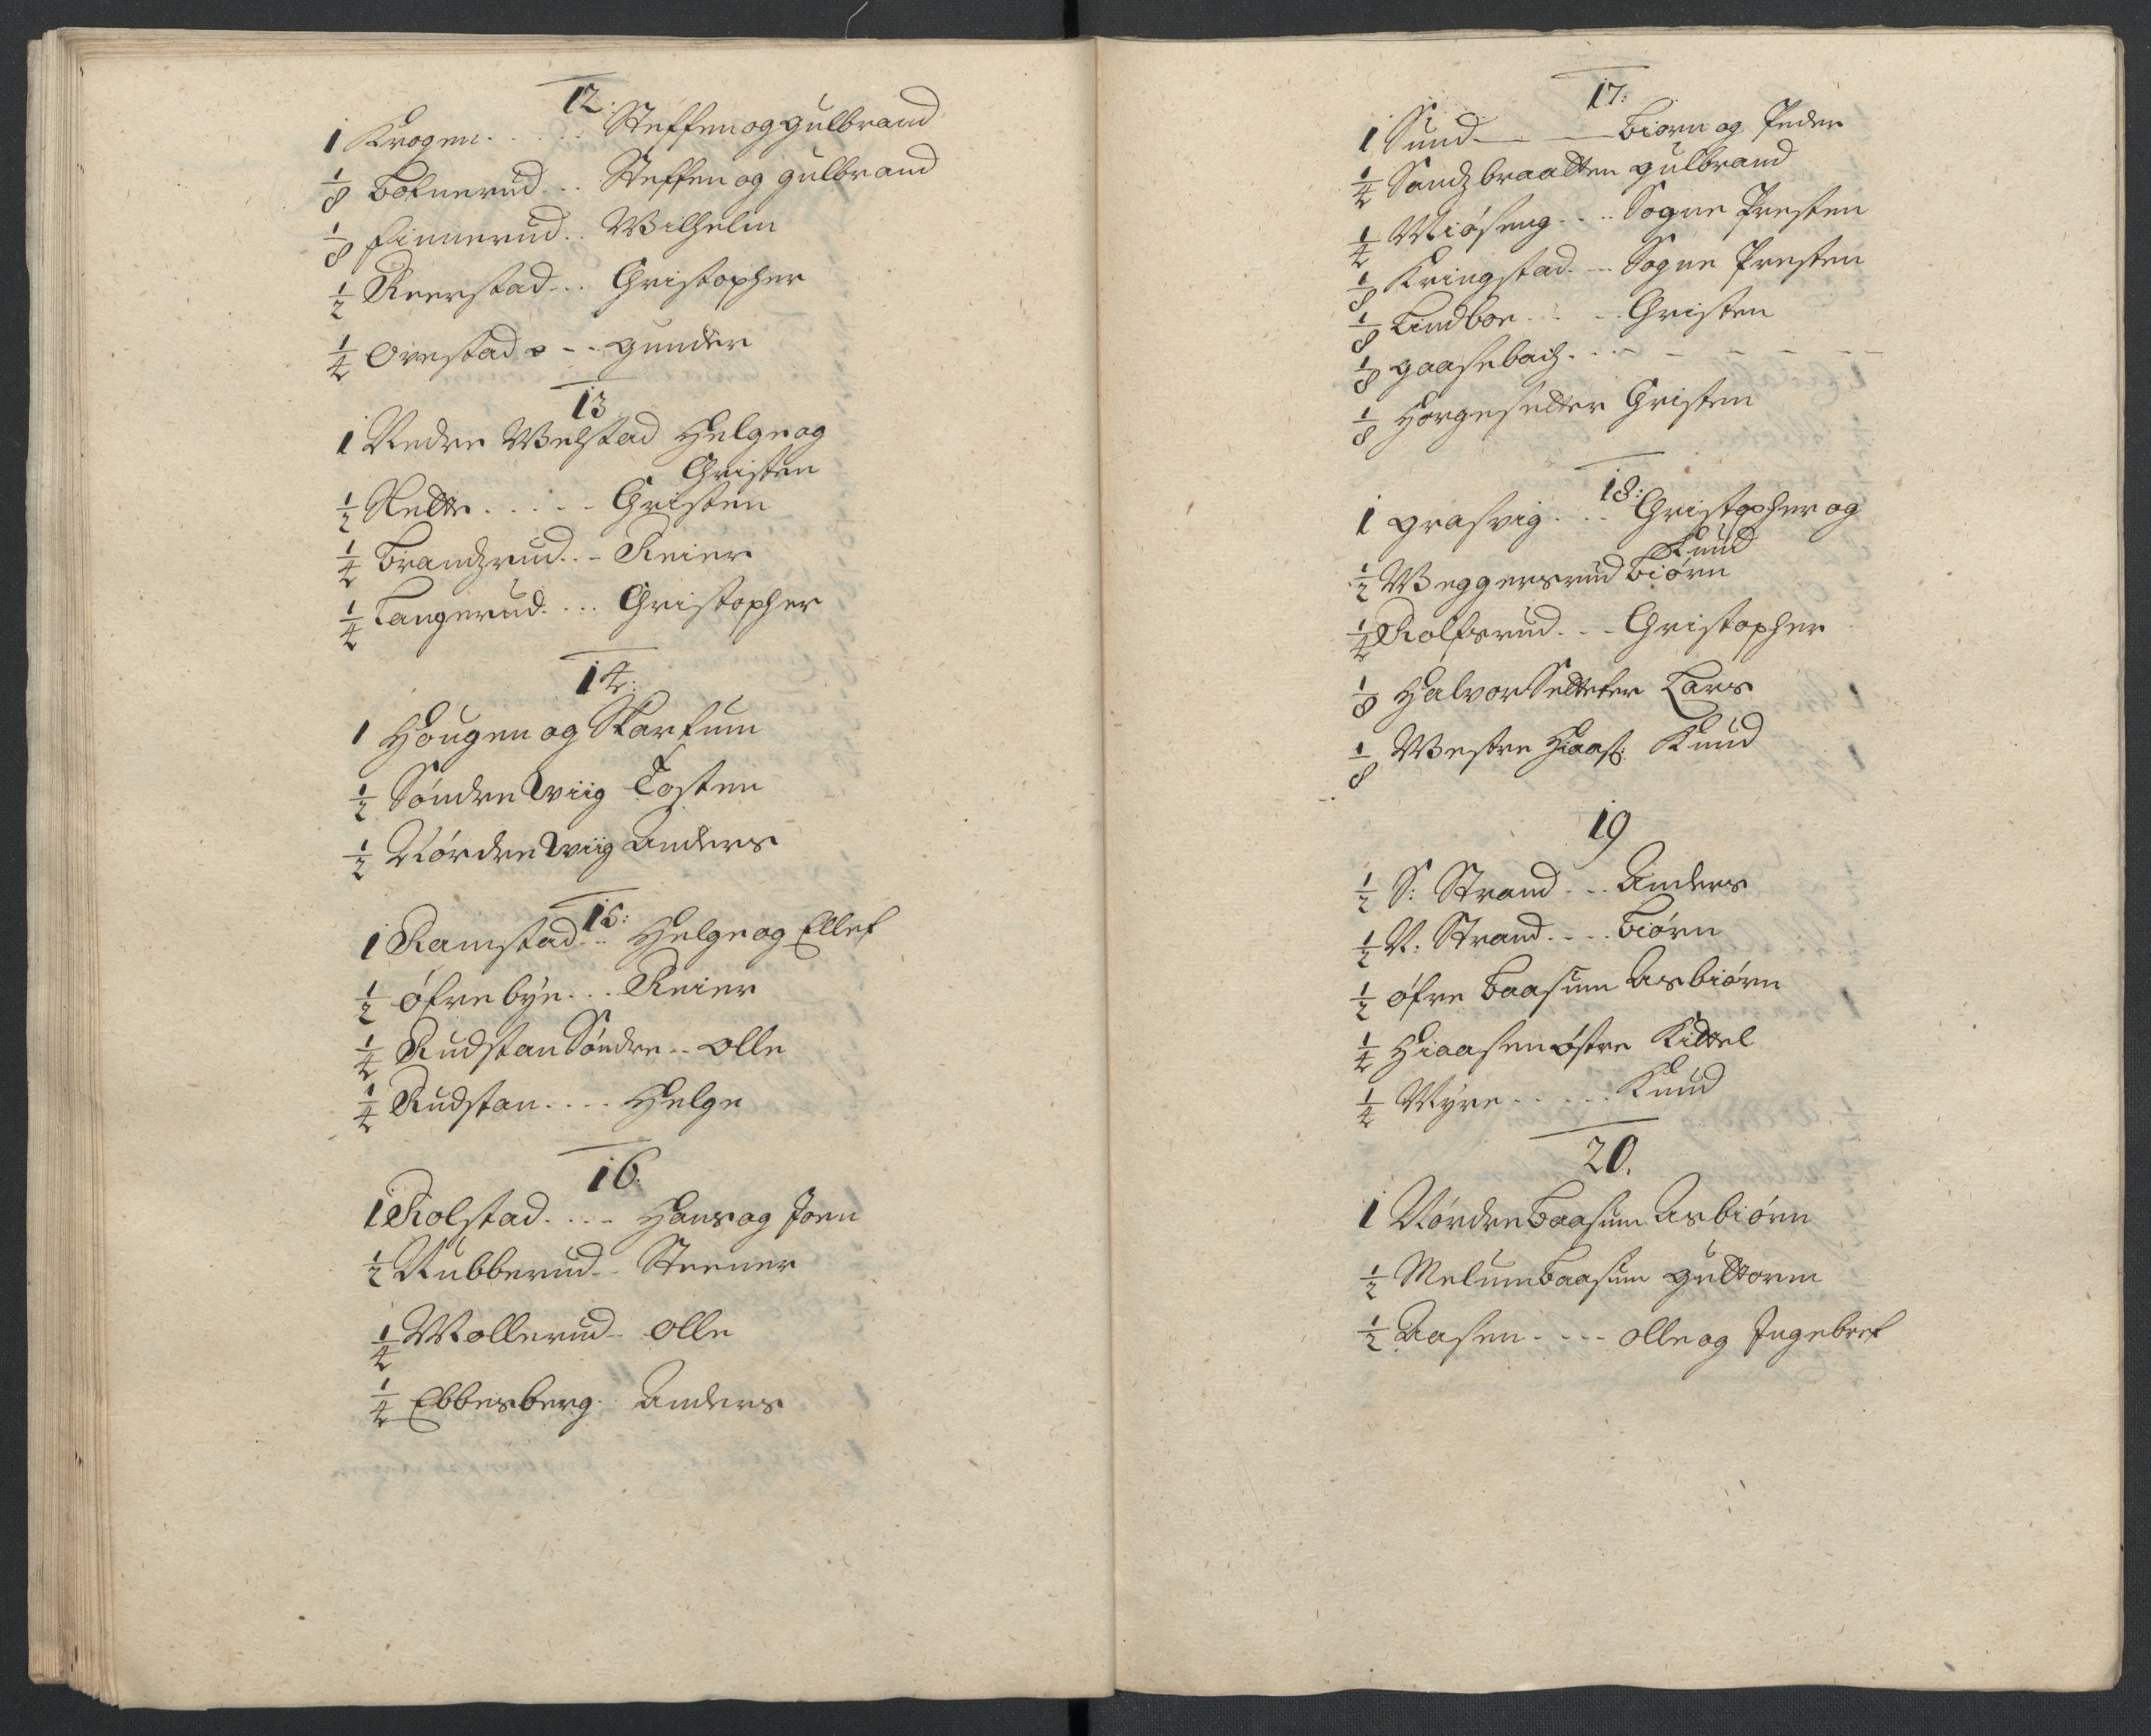 12.
1 Krogen. . . . . Steffen og gulbrand
1/8 Bofnerud. . . Steffen og gulbrand
1/8 finnerud. . Wilhelm
1/2 Reerstad. . . Christopher
1/4 Ovestad - - gunder
13
1 Nedre Welstad Helge og
Christen
1/2 Slette. . . . . Christen
1/4 Brandzrud. . - Reier
1/4 Tangerud. . . . Christopher
14.
1 Hougen og Skartum
1/2 Søndre Wiig Tosten
1/2 Nørdre Wiig Anders
15:
1 Ramstad. . . Helge og Ellef
1/2 øfre bÿe. . . Reier
1/4 Rudstan Søndre. . Olle
1/4 Rudstan. . . . Helge
16.
1 Rolstad. . . - Hans og Joen
1/2 Nubberud. . Steener
1/4 Mollerud. . Olle
1/4 Ebbesberg. . Anders
17:
1 Sund - - Biorn og Peder
1/4 Sandzbraatten gulbrand
1/4 Miøseng. . . . Sogne Presten
1/8 Kringstad. . . Sogne Presten
1/8 Lindboe. . . . Christen
1/8 gaasebach. . . - - - - - -
1/8 Horgesetter Christen
18:
1 grasvig. . . . Christopher og
Knud
1/2 Weggersrud Biørn
1/4 Rolfsrud. . . Christopher
1/8 Halvor Setteter Lars
1/8 Westre Hiaas: Knud
19
1/2 S: Strand. . . Anders
1/2 N: Strand. . . . Biørn
1/2 øfre Baasum Asbiørn
1/4 Hiaasen østre Kittel
1/4 Mÿre. . . . . Knud
20.
1 Nørdre Baasum Asbiørn
1/2 Melum Baasum guttorm
1/2 Aasen. . . . Olle og Ingebret